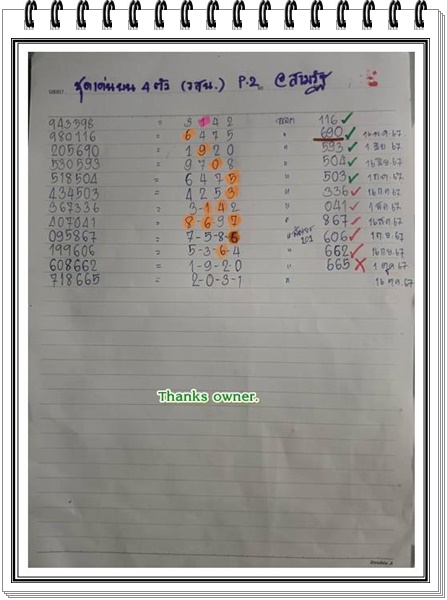 ชุดเด่นบน 4 ตัว (วสน.) P.2 @สามรัฐ
943596 = 3 1 4 2 ออก 116 ✓
980116 = 6 4 7 5 " 690 ✓ 16 พ.ค. 67
205690 = 1 9 2 0 " 593 ✓ 1 มิย 67
530593 = 9 7 0 8 " 504 ✓ 16 มิย. 67
518504 = 6 4 7 5 " 503 ✓ 1 ก.ค. 67
434503 = 4 2 5 3 " 336 ✓ 16 กค 67
367336 = 3-1 4 2 " 041 ✓ 1 สค 67
407041 = 8-6-9 7 " 867 ✓ 16 สค 67
095867 = 7-5-8 6 " 606 ✓ 1 กย. 67
199606 = 5-3-6-4 " 662 ✓ 16 กย. 67
608662 = 1-9-2-0 " 665 ✗ 1 ตุล 67
718665 = 2-0-3-1 " 16 ตค. 67
Thanks owner.
Double A